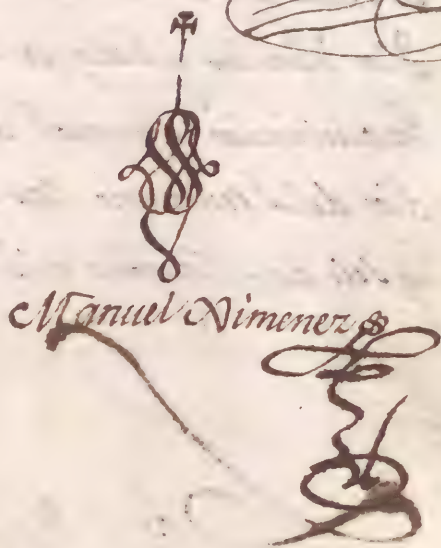 Manuel Ximenez